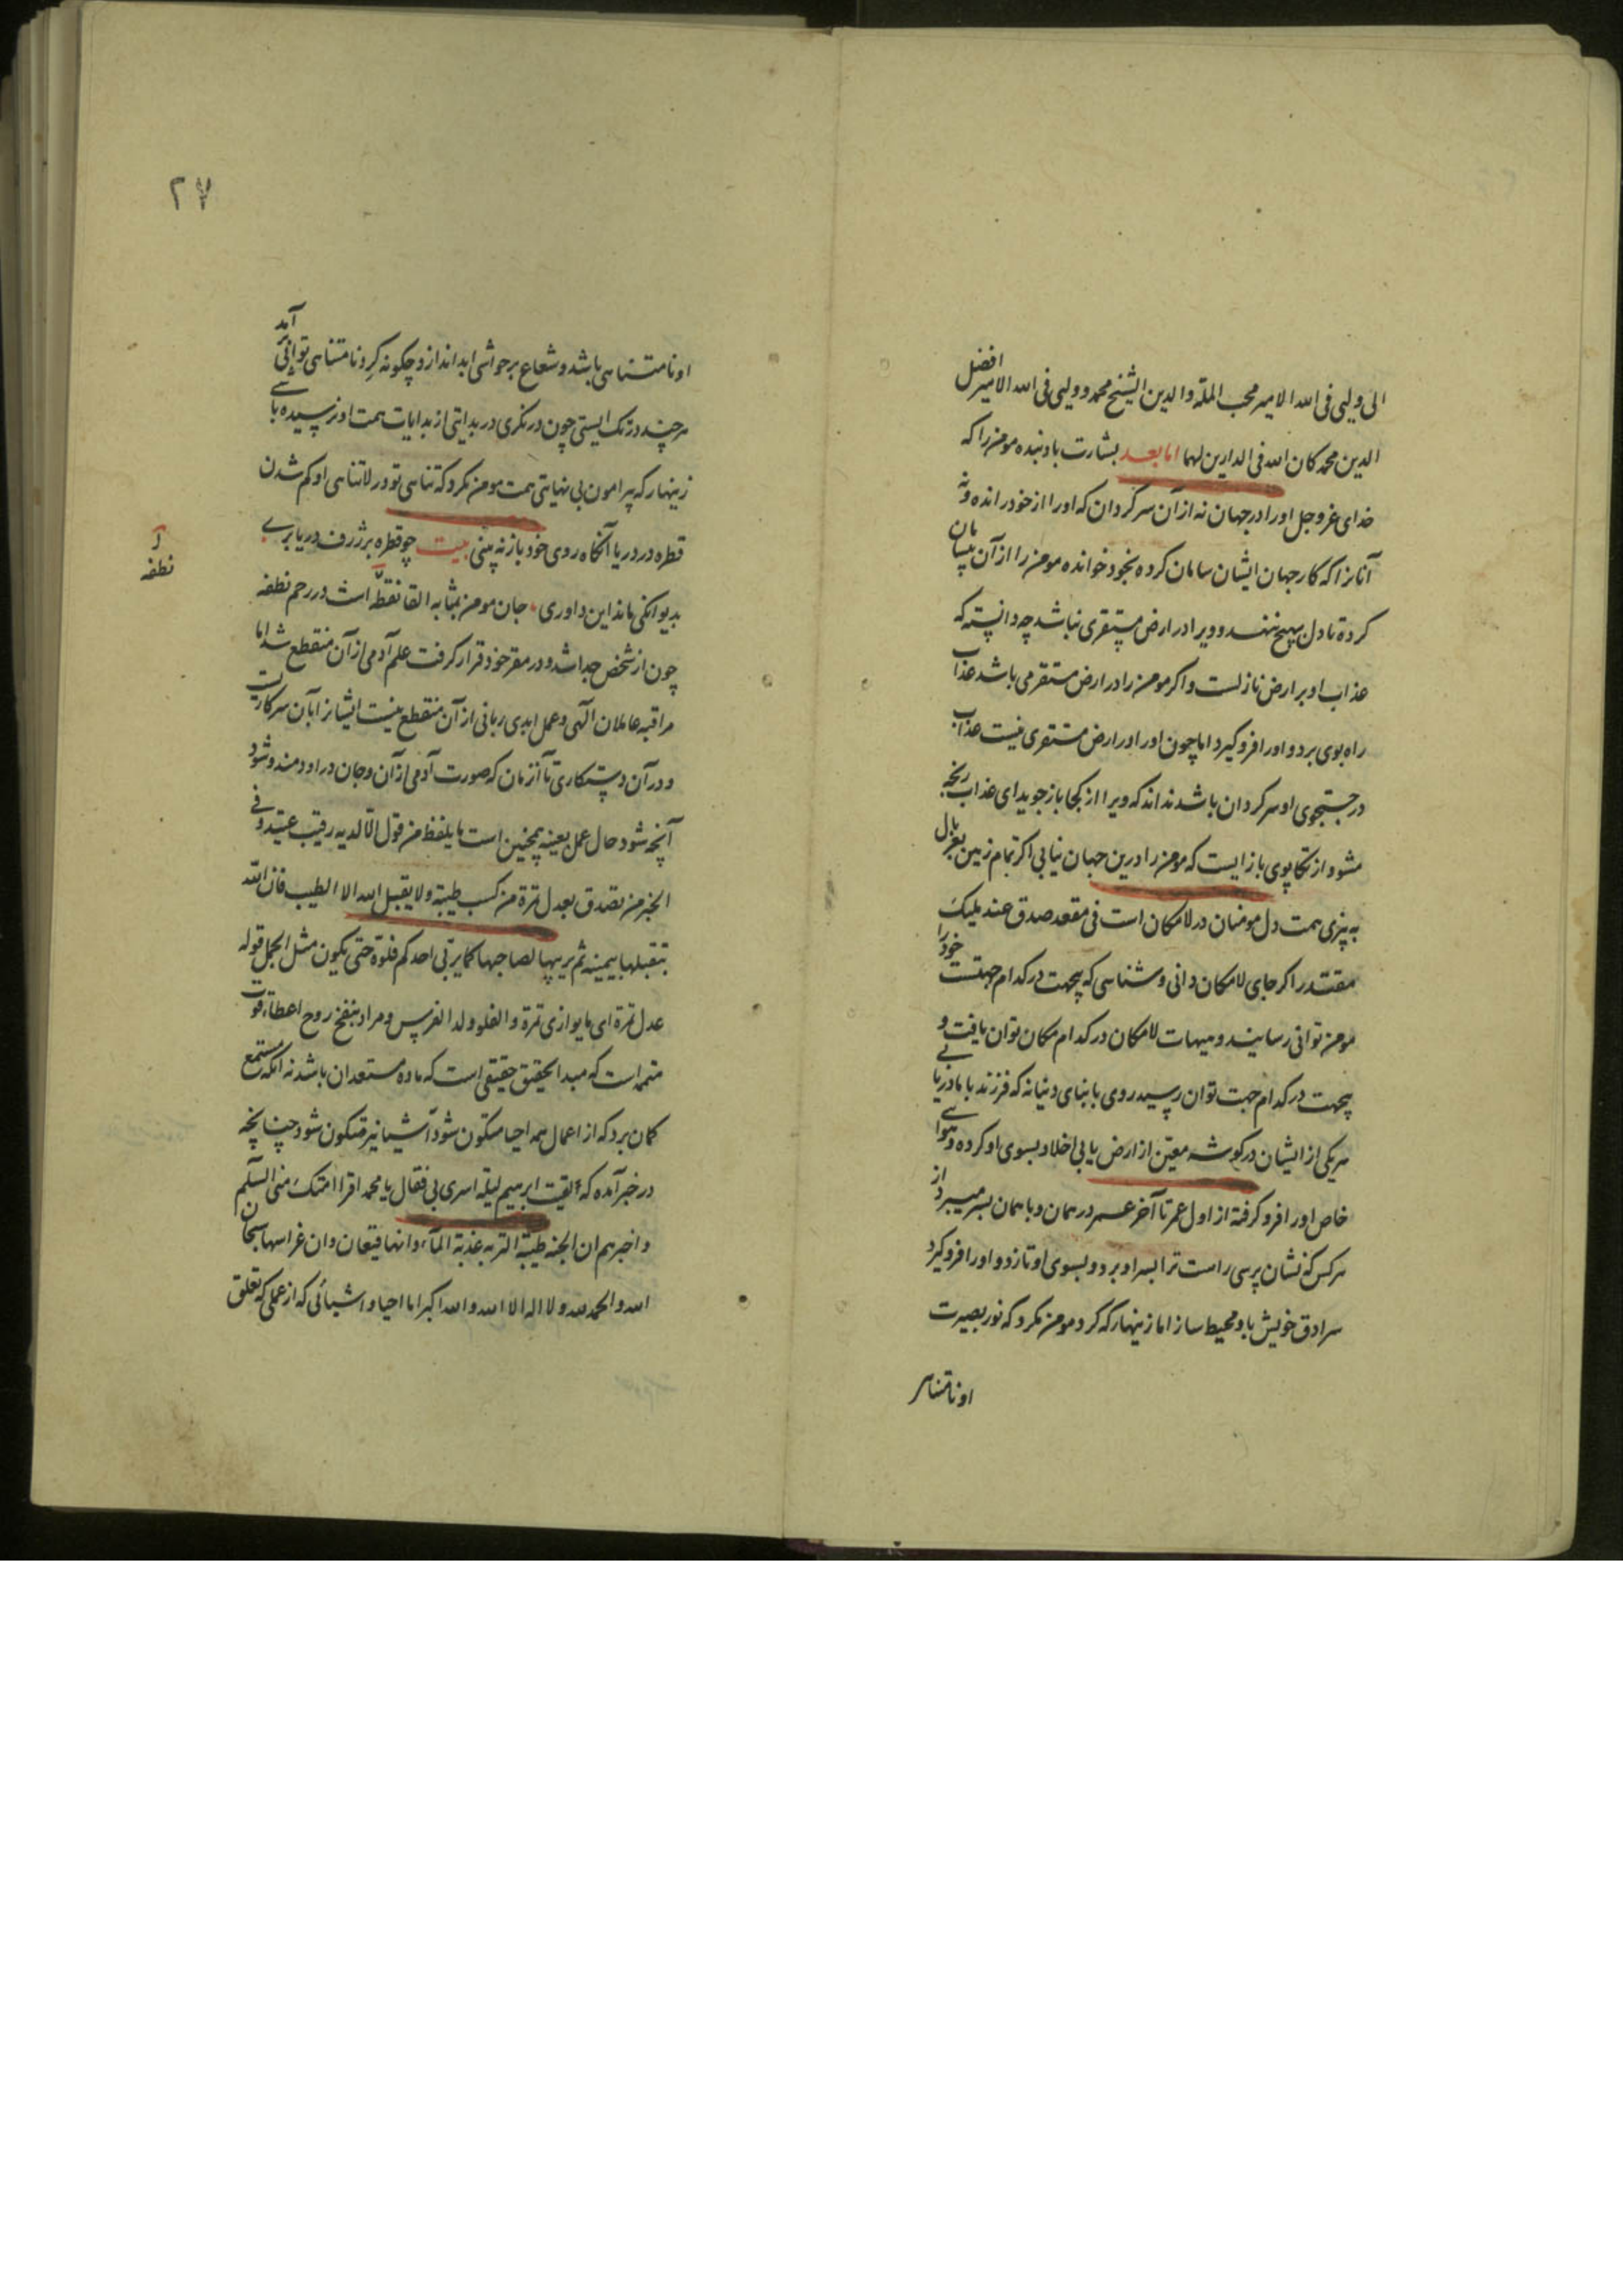 الی ولیی فی الله الامیر محب الملة والدین الشیخ محمد و ولیی فی الله الامیر افضل
الدین محمد کان الله فی الدارین لهما اما بعد بشارت باد بنده مومن را که
خدای عزوجل او را در جهان نه از آن سر گردان که او را از خود رانده و نه
آنانرا که کار جهان ایشان سامان کرده بخود خوانده مومن را از آن بیسامان
کرده تا دل بهیچ ننهد و ویرا در ارض مستقری نباشد چه دانسته که
عذاب او بر ارض نازلست و اگر مومن را در ارض مستقر می باشد عذاب
راه بوی برد و او را فرو گیرد اما چون او را در ارض مستقری نیست عذاب
در جستجوی او سر گردان باشد نداند که ویرا از کجا باز جوید ای عذاب رنجه
مشو و از تکاپوی باز ایست که مومن را درین جهان نیابی اگر تمام زمین بغربال
به بیزی همت دل مومنان در لا مکان است فی مقعد صدق عند ملیک
مقتدر اگر جای لا مکان دانی و شناسی که بیجهت در کدام جهتست خود را
بمومن توانی رسانید و هیهات لامکان در کدام مکان توان یافت و
بیجهت در کدام جهت توان رسید روی بابنای دنیا نه که فرزند با مادر یابی
هر یکی از ایشان در گوشه معین از ارض یابی اخلاد بسوی او کرده و هوای
خاص او را فرو گرفته از اول عمر تا آخر عمر در همان و با همان بسر میبرد از
هر کس که نشان پرسی راست ترا بسر او برد و بسوی او تاز و او را فرو گیر و
سرادق خویش باو محیط ساز اما زینهار که گرد مومن نگرد که نور بصیرت
او نامتناهی
۲۷
او نامتناهی باشد و شعاع بر حواشی ابد اندازد چگونه گرد نامتناهی توانی بر آمد
هر چند در تک ایستی چون در نگری در بدایتی از بدایات همت او نرسیده باشی
زینهار که پیرامون بی نهایتی همت مومن نگرد که تناهی تو در لاتناهی او گم شدن
قطره در دریا آنگاه روی خود باز نه بینی بیت چو قطره بر ژرف دریا بری
بدیوانگی ماند این داوری جان مومن بمثابه القا نقطه است در رحم نطفه
نطفه
چون از شخص جدا شد و در مقر خود قرار گرفت علم آدمی از آن منقطع شد اما
مراقبه عاملان الهی و عمل ایدی ربانی از آن منقطع نیست ایشانرا بآن سر کاریست
و در آن دستکاری تا آنزمان که صورت آدمی از آن و جان در او دمند و شود
آنچه شود حال عمل بعینه همچنین است ما یلفظ من قول الا لدیه رقیب عتید و فی
الخبر من تصدق بعدل تمرة من کسب طیبة و لا یقبل الله الا الطیب فان الله
یتقبلها بیمینه ثم یربیها لصاحبها کما یربی احدکم فلوه حتی یکون مثل الجبل قوله
عدل تمرة ای ما یوازی تمرة و الفلو ولد الفرس و مراد بنفخ روح اعطاء قوت
متممه است که مبدا بحقیق حقیقی است که ماده مستعد آن باشد نه آنکه مستمع
گمان برد که از اعمال همه احیا متکون شود اشیا نیز متکون شود چنانچه
در خبر آمده که لقیت ابرهیم لیلة اسری بی فقال یا محمد اقرا امتک منی السلم
و اخبرهم ان الجنه طیبة التربه عذبة المآء و انها قیعان و ان غراسها سبحان
الله و الحمد لله و لا اله الا الله و الله اکبر اما احیا و اشیائی که از عملی که تعلق